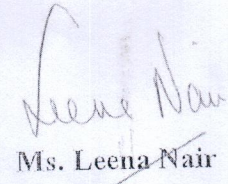 Leena Nair
Ms. Leena Nair